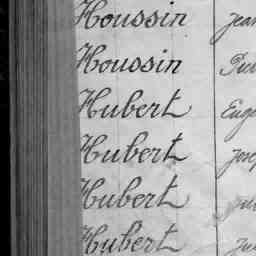 Houssin Jean
Houssin
Hubert Eug
Hubert Jose
Hubert
Hubert